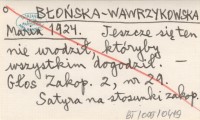 BŁOŃSKA-WAWRZYKOWSKA
Maria 1924. Jeszcze się ten
nie urodził, któryby
wszystkim dogodził. —
Głos Zakop. 2, nr 29.
Satyra na stosunki zakop.